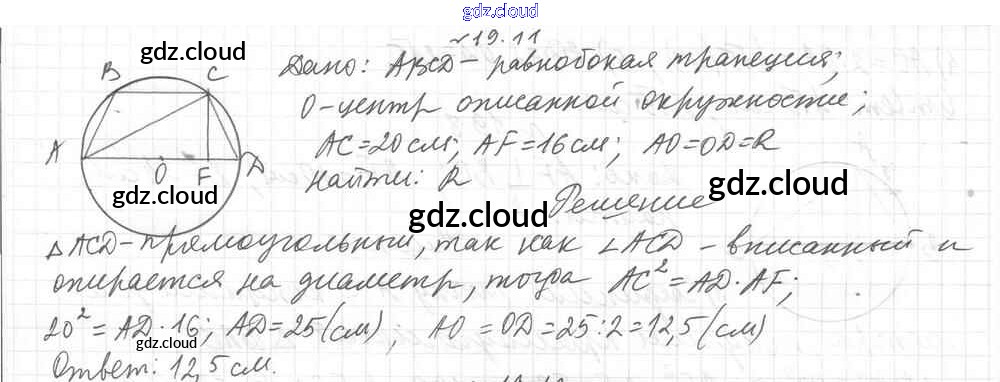 gdz.cloud
19.11
Дано: ABCD - равнобокая трапеция;
O-центр описанной окружности;
AC=20см; AF=16см; AO=OD=R
Найти: R
Решение
B C
A O F D
gdz.cloud
gdz.cloud
gdz.cloud
gdz.cloud
gdz.cloud
△ACD-прямоугольный, так как ∠ACD - вписанный и
опирается на диаметр, тогда AC²=AD·AF;
20²=AD·16; AD=25(см), AO=OD=25:2=12,5(см)
gdz.cloud
gdz.cloud
Ответ: 12,5 см.